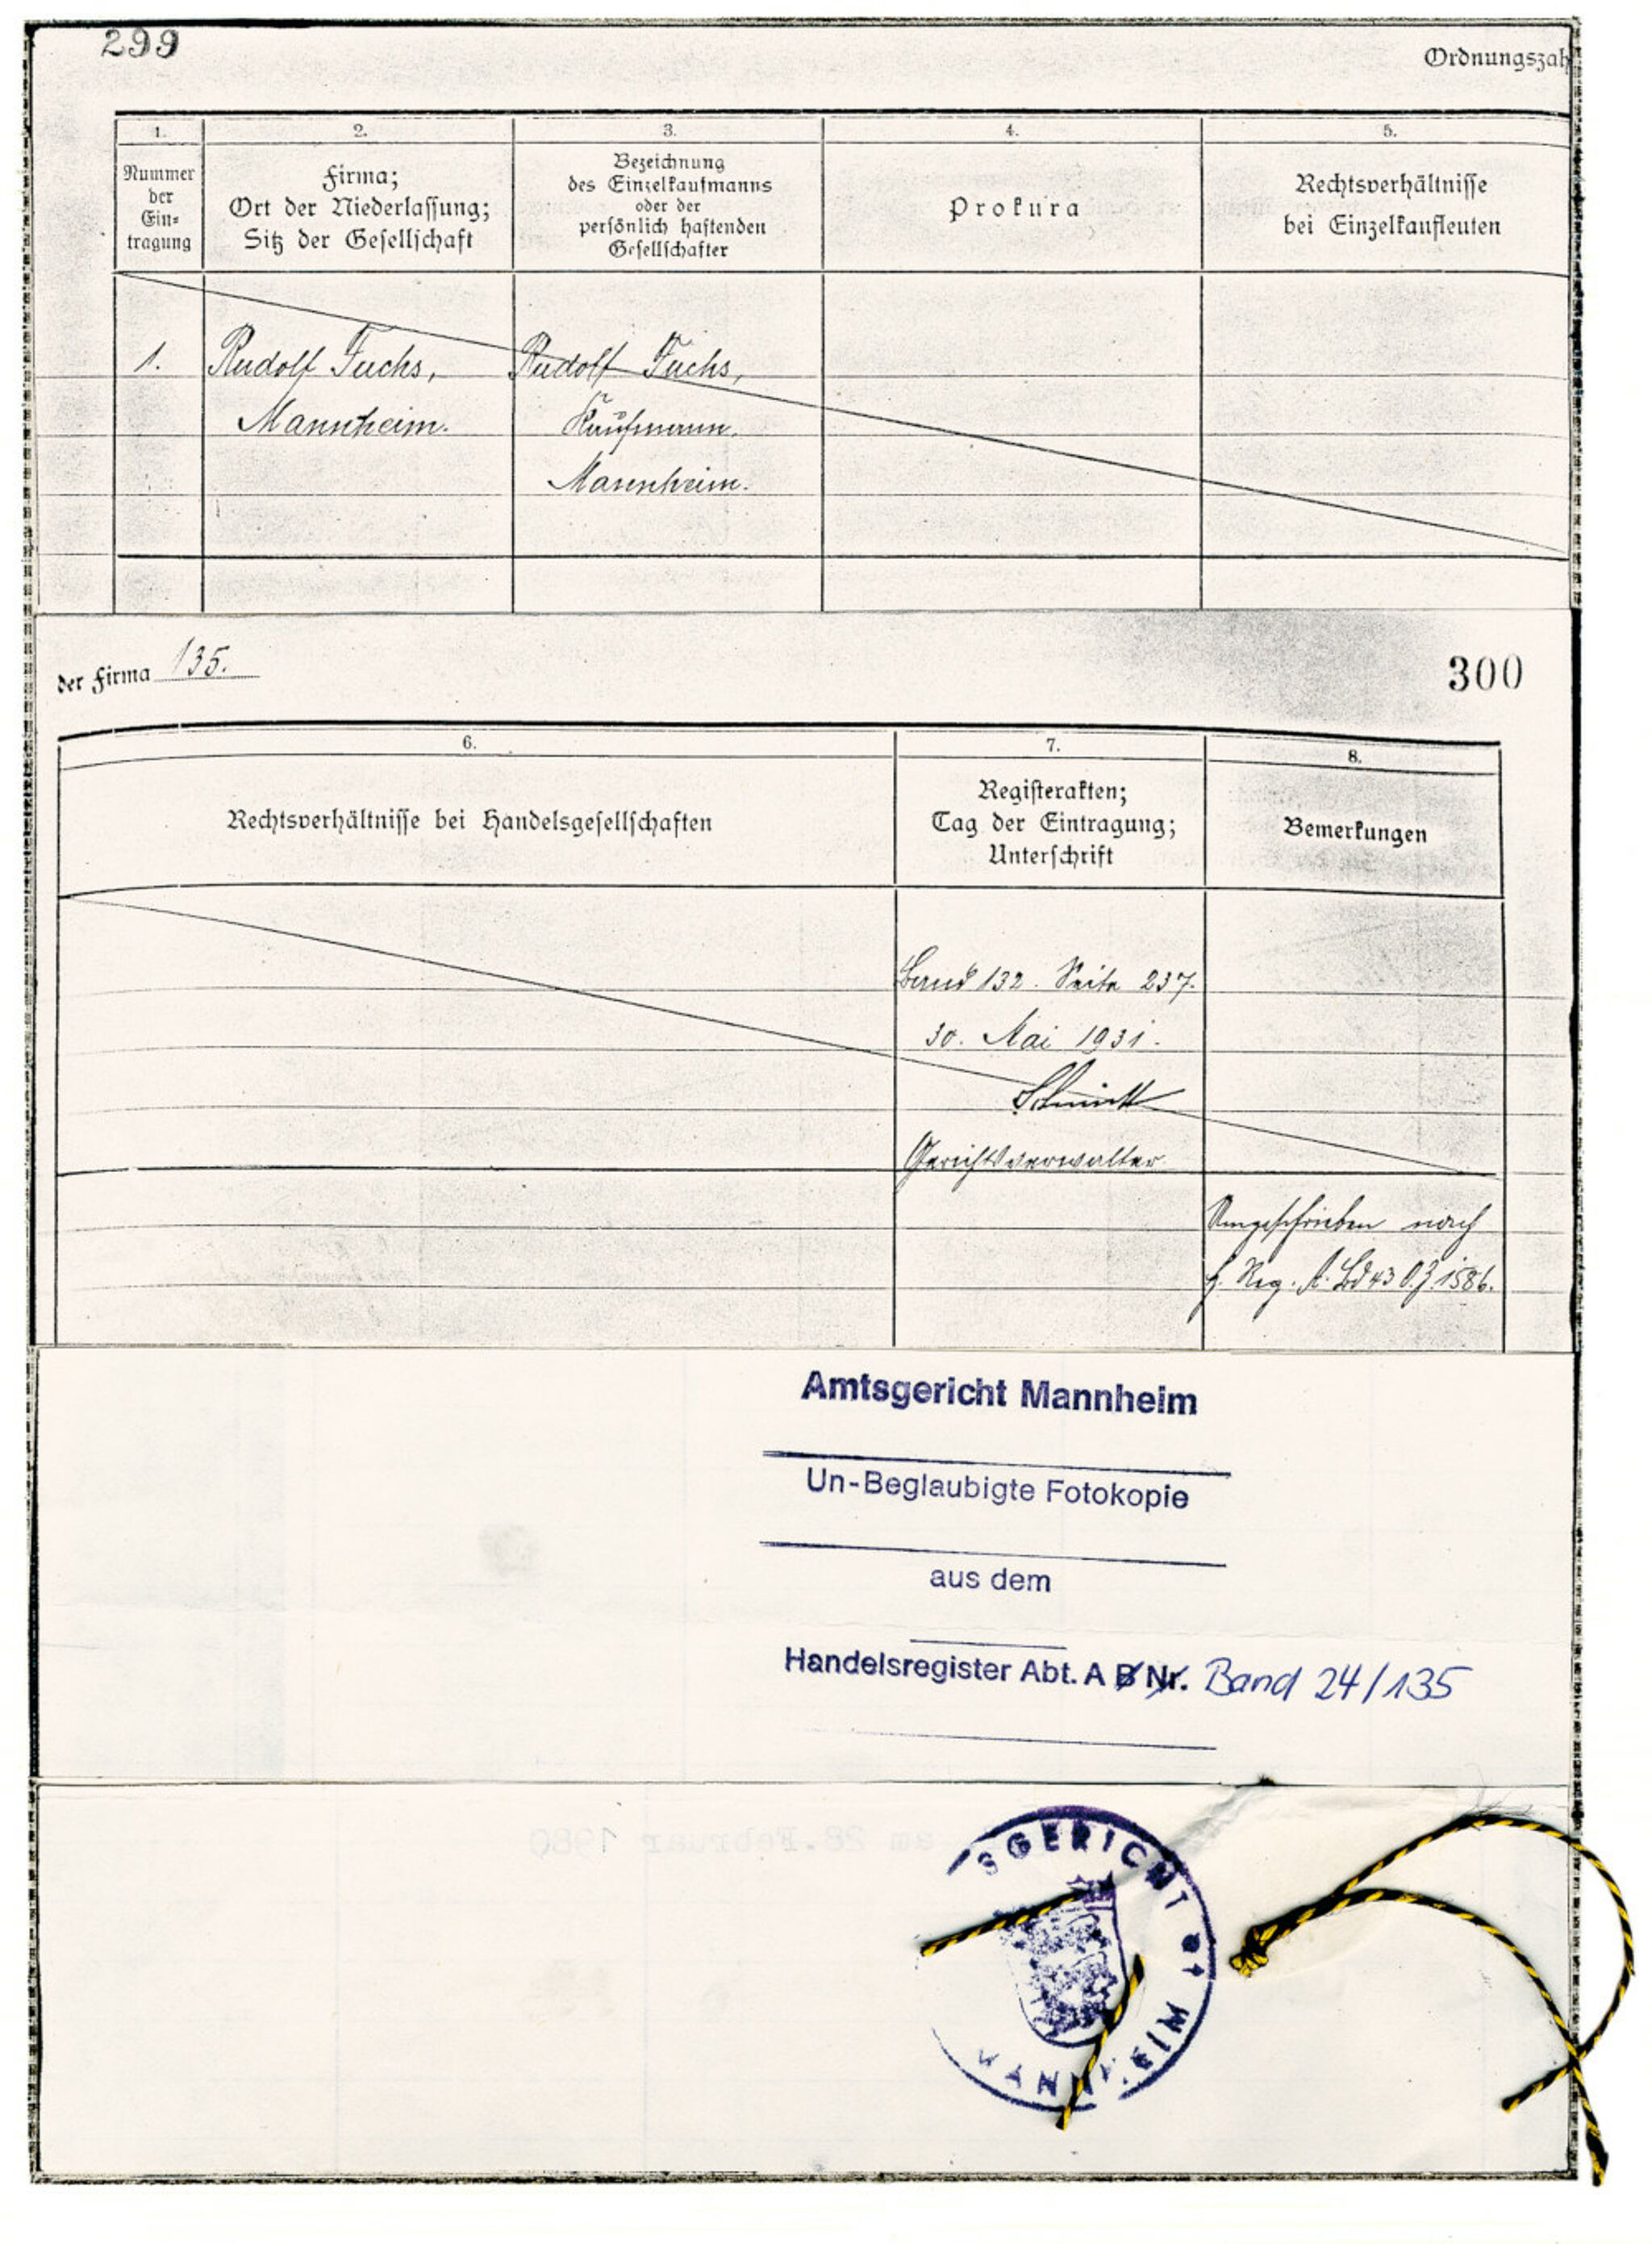 299
Ordnungszah
1.
2.
3.
4.
5.
Nummer
der
Ein-
tragung
Firma;
Ort der Niederlassung;
Sitz der Gesellschaft
Bezeichnung
des Einzelkaufmanns
oder der
persönlich haftenden
Gesellschafter
Prokura
Rechtsverhältnisse
bei Einzelkaufleuten
1.
Rudolf Fuchs,
Mannheim.
Rudolf Fuchs,
Kaufmann,
Mannheim.
der Firma 135.
300
6.
7.
8.
Rechtsverhältnisse bei Handelsgesellschaften
Registerakten;
Tag der Eintragung;
Unterschrift
Bemerkungen
Band 132. Seite 237.
30. Mai 1931.
Schmitt
Gerichtsverwalter.
Umgeschrieben nach
H. Reg. A. Bd 43 O.Z. 1586.
Amtsgericht Mannheim
Un-Beglaubigte Fotokopie
aus dem
Handelsregister Abt. A B Nr. Band 24/135
am 28. Februar 1980
SGERICHT 61
MANNHEIM